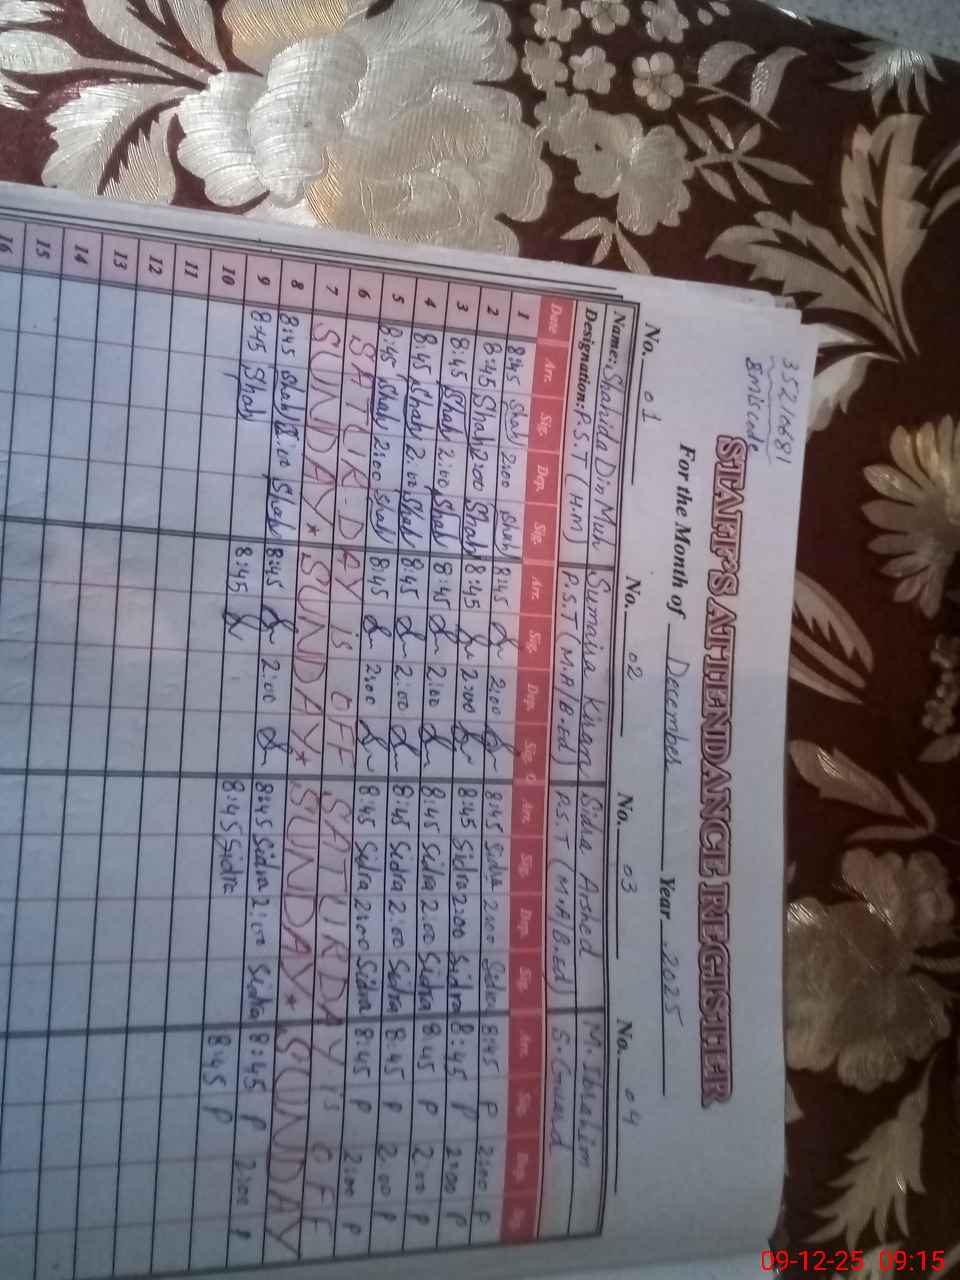 35210681
EMIS code
STAFF'S ATTENDANCE REGISTER
For the Month of December Year 2025
No. 01 No. 02 No. 03 No. 04
Name: Shahida Din Muh Sumaira Kiran Sidra Arshed M. Ibrahim
Designation: P.S.T (H.M) P.S.T (M.A/B.ed) P.S.T (M.A/B.ed) S. Guard
Date Arr. Sig. Dep. Sig. Arr. Sig. Dep. Sig. Arr. Sig. Dep. Sig. Arr. Sig. Dep. Sig.
1 8:45 Shah 2:00 Shah 8:45 2:00 8:45 Sidra 2:00 Sidra 8:45 P 2:00 P
2 8:45 Shah 2:00 Shah 8:45 2:00 8:45 Sidra 2:00 Sidra 8:45 P 2:00 P
3 8:45 Shah 2:00 Shah 8:45 2:00 8:45 Sidra 2:00 Sidra 8:45 P 2:00 P
4 8:45 Shah 2:00 Shah 8:45 2:00 8:45 Sidra 2:00 Sidra 8:45 P 2:00 P
5 8:45 Shah 2:00 Shah 8:45 2:00 8:45 Sidra 2:00 Sidra 8:45 P 2:00 P
6 SATURDAY is OFF SATURDAY is OFF
7 SUNDAY * SUNDAY * SUNDAY * SUNDAY
8 8:45 Shah 2:00 Shah 8:45 2:00 8:45 Sidra 2:00 Sidra 8:45 P 2:00 P
9 8:45 Shah 8:45 8:45 Sidra 8:45 P
10
11
12
13
14
15
16
09-12-25 09:15